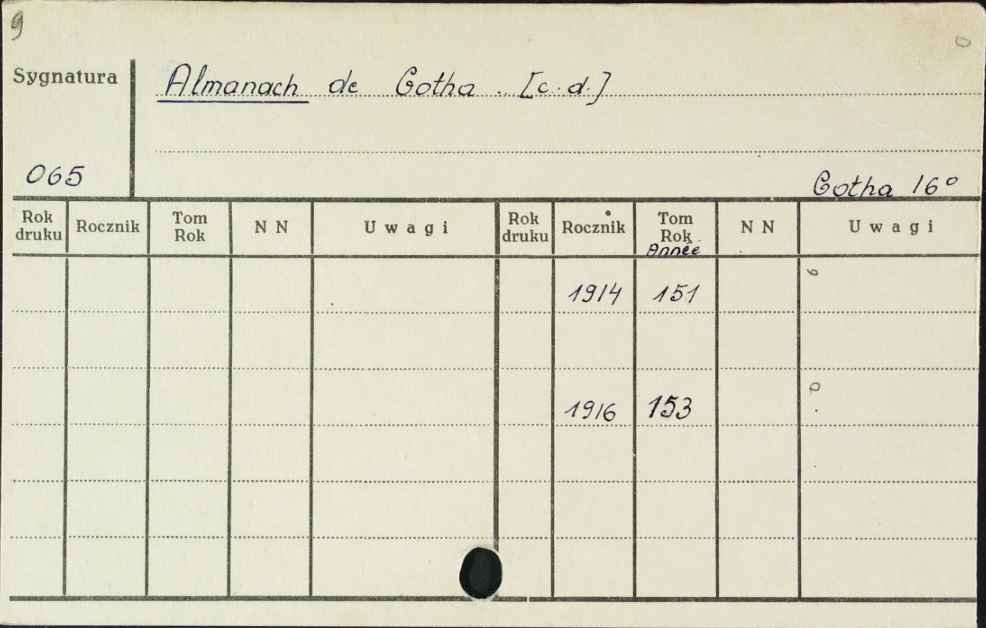 9
Sygnatura Almanach de Gotha .. [c.d.]
065 Gotha 16°
Rok druku Rocznik Tom Rok N N Uwagi Rok druku Rocznik Tom Rok Année N N Uwagi
1914 151
1916 153